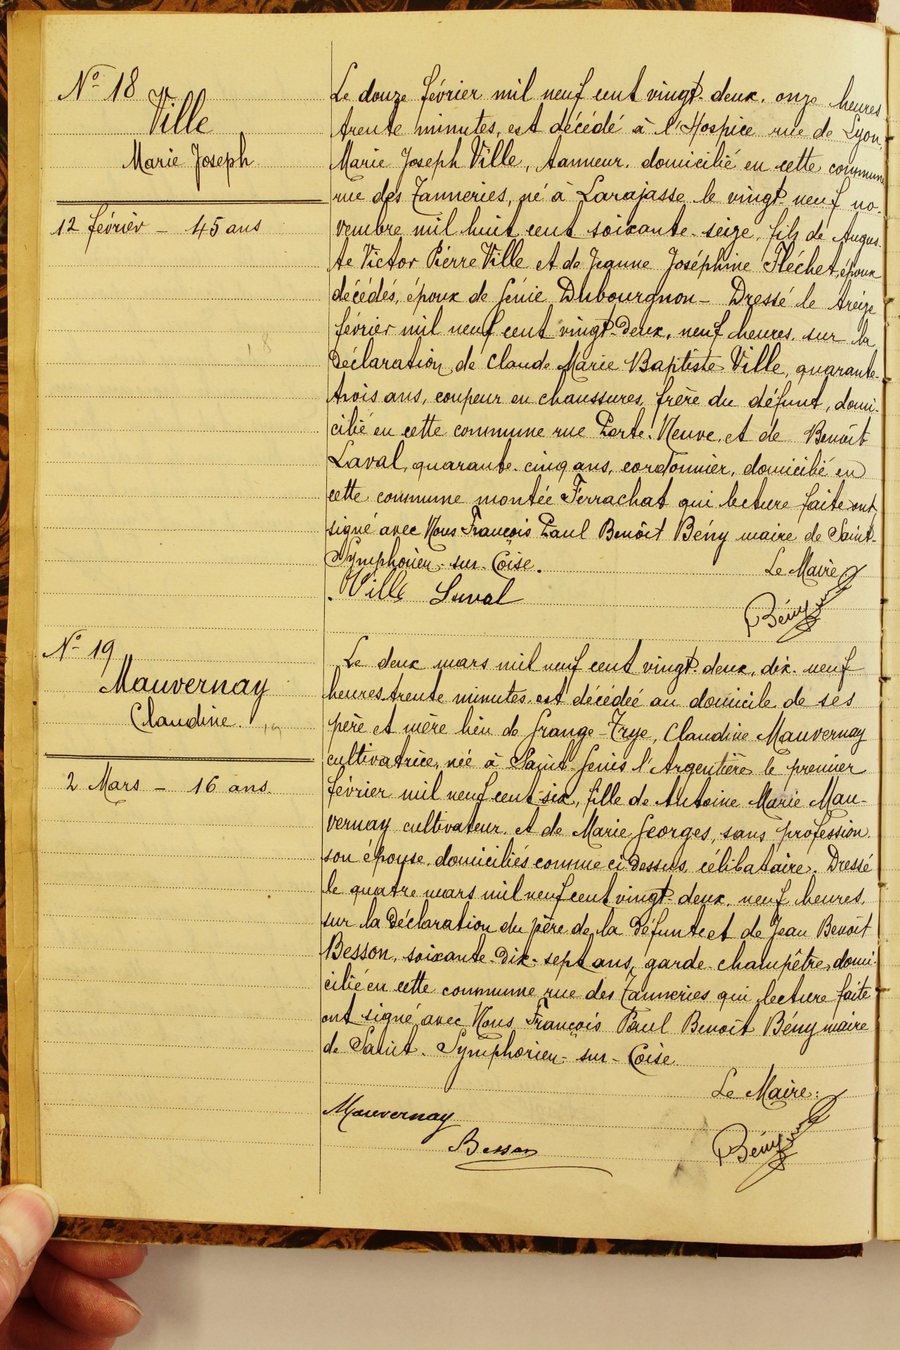 N° 18
Ville
Marie Joseph
12 février - 45 ans
Le douze février mil neuf cent vingt-deux, onze heures
trente minutes, est décédé à l'Hospice rue de Lyon,
Marie Joseph Ville, tanneur, domicilié en cette commune
rue des Tanneries, né à Larajasse le vingt neuf no-
vembre mil huit cent soixante-seize, fils de Augus-
te Victor Pierre Ville et de Jeanne Joséphine Fléchet, époux
décédés, époux de Génie Dubourgnon - Dressé le treize
février mil neuf cent vingt-deux, neuf heures, sur la
déclaration de Claude Marie Baptiste Ville, quarante-
trois ans, coupeur en chaussures, frère du défunt, domi-
cilié en cette commune rue Porte-Neuve, et de Benoît
Laval, quarante-cinq ans, cordonnier, domicilié en
cette commune montée Ferrachat qui lecture faite ont
signé avec Nous François Paul Benoît Bény maire de Saint-
Symphorien-sur-Coise.
Le Maire
Ville Laval
Bény
N° 19
Mauvernay
Claudine
2 Mars - 16 ans.
Le deux mars mil neuf cent vingt-deux, dix-neuf
heures trente minutes est décédée au domicile de ses
père et mère lieu de Grange-Trye, Claudine Mauvernay
cultivatrice, née à Saint-Genis l'Argentière le premier
février mil neuf cent six, fille de Antoine Marie Mau-
vernay cultivateur et de Marie Georges, sans profession
son épouse, domiciliés comme ci dessus, célibataire. Dressé
le quatre mars mil neuf cent vingt-deux, neuf heures,
sur la déclaration du père de la défunte et de Jean Benoît
Besson, soixante-dix-sept ans, garde-champêtre, domi-
cilié en cette commune rue des Tanneries qui lecture faite
ont signé avec Nous François Paul Benoît Bény maire
de Saint-Symphorien-sur-Coise
Le Maire:
Mauvernay
Besson
Bény